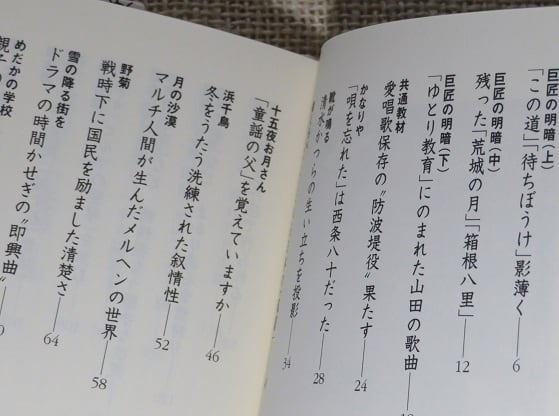 巨匠の明暗(上)
「この道」「待ちぼうけ」影薄く――6
巨匠の明暗(中)
残った「荒城の月」「箱根八里」――12
巨匠の明暗(下)
「ゆとり教育」にのまれた山田の歌曲――
共通教材
愛唱歌保存の〝防波堤役〟果たす――24
かなりや
「唄を忘れた」は西条八十だった――28
靴が鳴る
清水かつらの生い立ちを投影――34
十五夜お月さん
「童謡の父」を覚えていますか――46
浜千鳥
冬をうたう洗練された叙情性――52
月の沙漠
マルチ人間が生んだメルヘンの世界――58
野菊
戦時下に国民を励ました清楚さ――64
雪の降る街を
ドラマの時間かせぎの〝即興曲〟――
めだかの学校